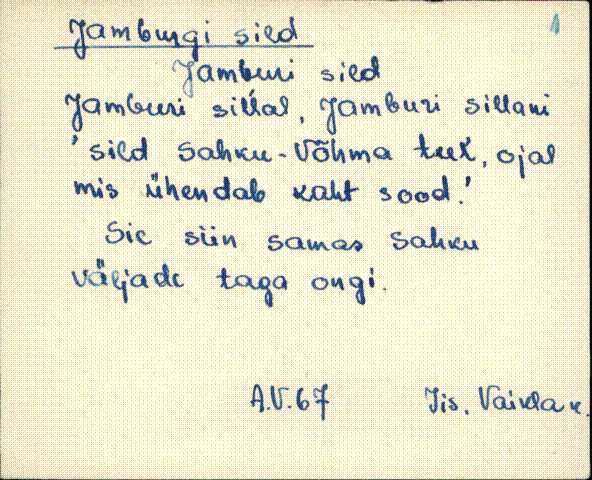 Jamburgi sild
Jamburi sild
Jamburi sillal, Jamburi sillani
'sild Sahku-Võhma teel, ojal
mis ühendab kaht sood.'
Sie siin samas Sahku
väljade taga ongi.
A.V.67 Iis. Vaikla k.
1